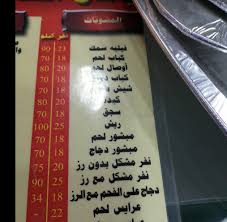 المشويات
نفر كيلو
فيليه سمك 23 90
كباب لحم 18 70
أوصال لحم 20 80
كباب 18 70
شيش 18 70
كبدة 20 80
سجق 18 70
ريش 25 100
مبشور لحم 18 70
مبشور دجاج 18 70
نفر مشكل بدون رز 20 75
نفر مشكل مع رز 25 90
دجاج على الفحم مع الرز 18 34
عرايس لحم 22 -